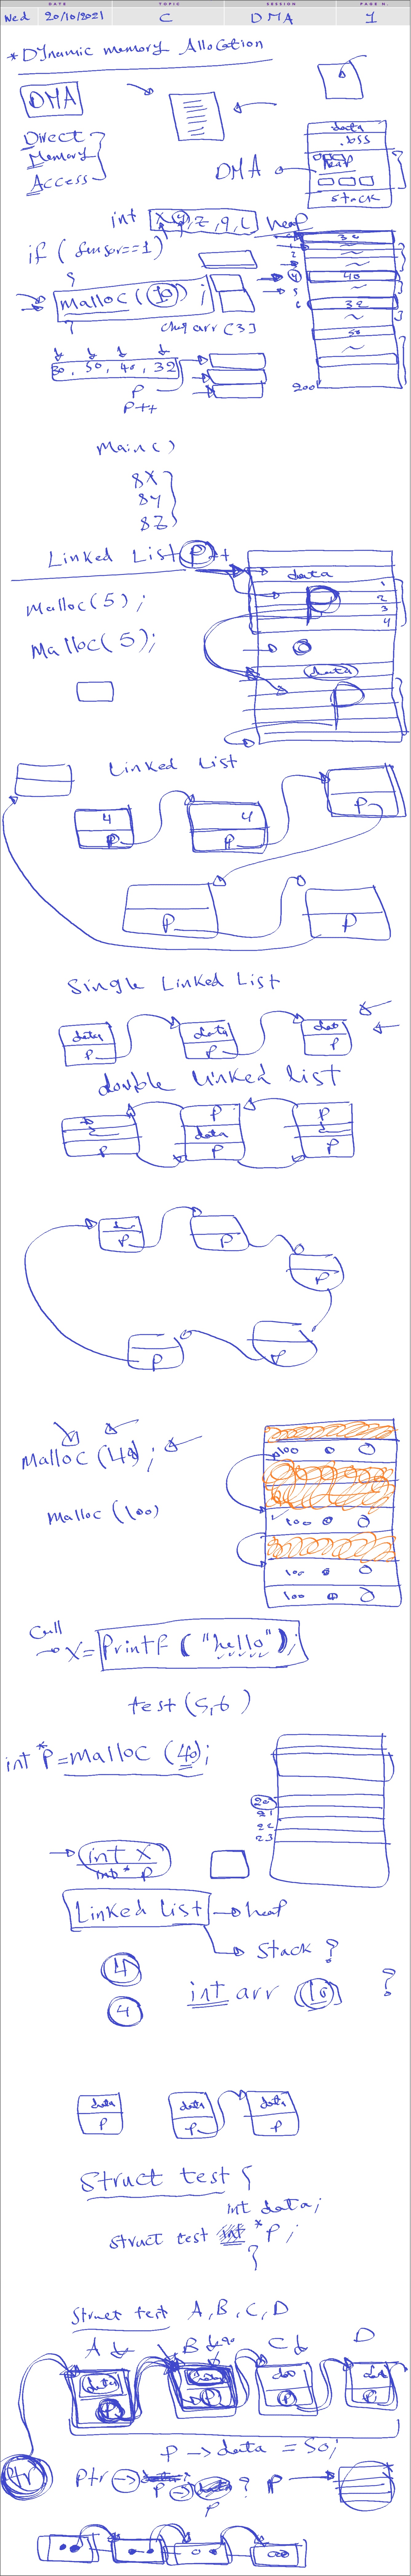 DATE TOPIC SESSION PAGE N.
Wed 20/10/2021 C DMA 1
* Dynamic memory Allocation
DMA
Direct
Memory
Access
data
.bss
heap
stack
DMA
int x, y, z, 9, L heap
if ( sensor==1)
{
malloc (10) ;
}
char arr [3]
30, 50, 40, 32
P
P++
1
2
4
5
6
30
40
32
50
200
main ( )
8X
8Y
8Z
Linked List P++
malloc(5) ;
Malloc(5);
data
P
1
2
3
4
data
P
Linked List
4
P
4
P
P
P
P
Single Linked List
data
P
data
P
P
double linked list
P
P
data
P
P
P
P
P
P
P
P
malloc (40) ;
malloc (100)
100
100
100
100
Call
X= Printf ( "hello" );
test (5,6)
int *P = malloc (40);
20
21
22
23
int X
int* P
Linked List → heap
→ Stack ?
4
4
int arr (10) ?
data
P
data
P
data
P
Struct test {
int data;
struct test *P ;
}
Struct test A, B, C, D
A B C D
data
P
P
P
P → data = 50;
Ptr
Ptr → P → data ? P →
P